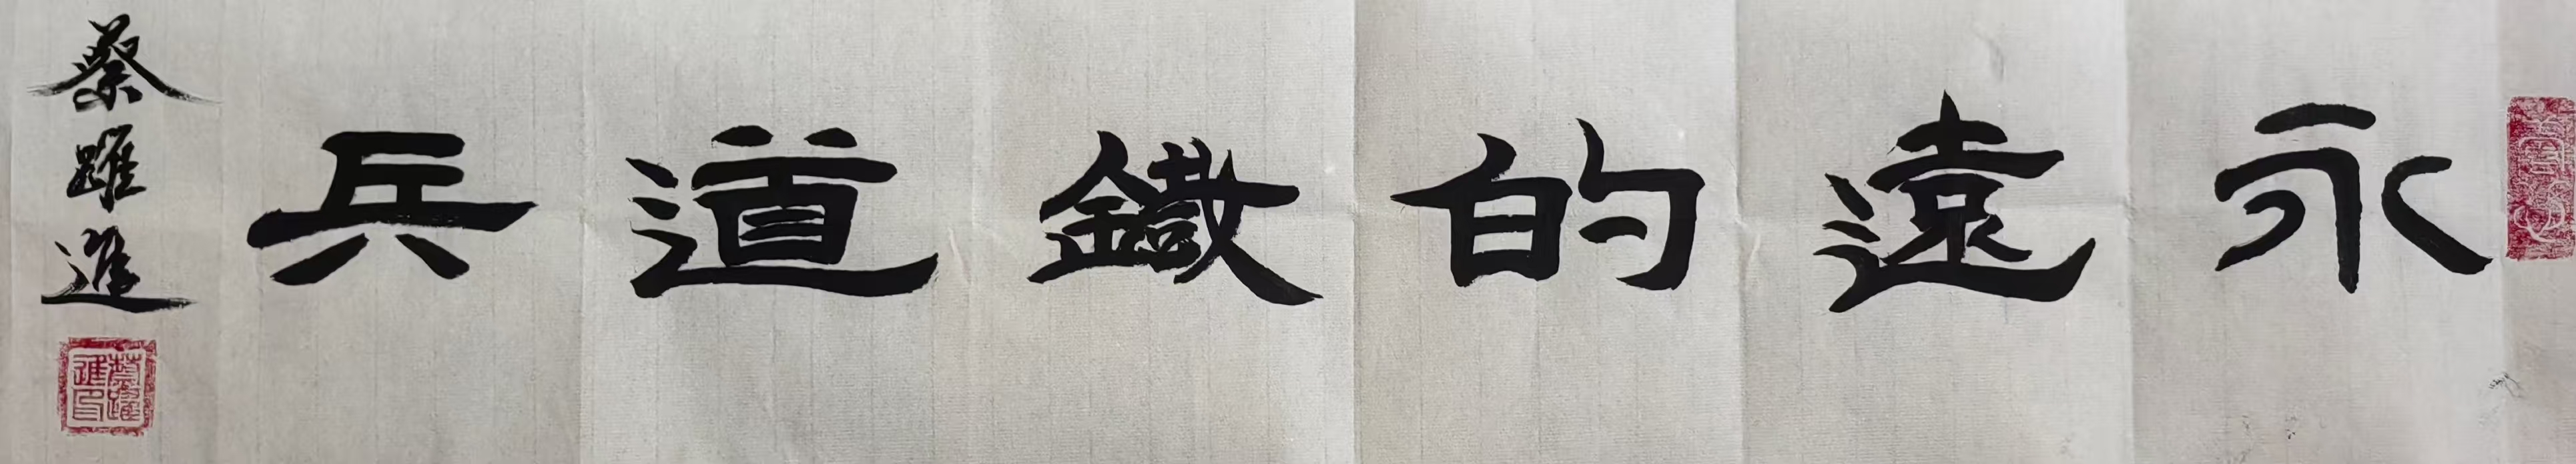 永遠的鐵道兵
蔡躍進
蔡躍進印